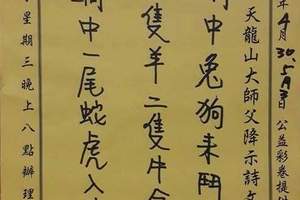 年4月30.5月3日公益彩卷提供
天龍山大師父降示詩文
中兔狗来鬥
隻羊二隻牛合
中一尾蛇虎入
星期三晚上八點辦理